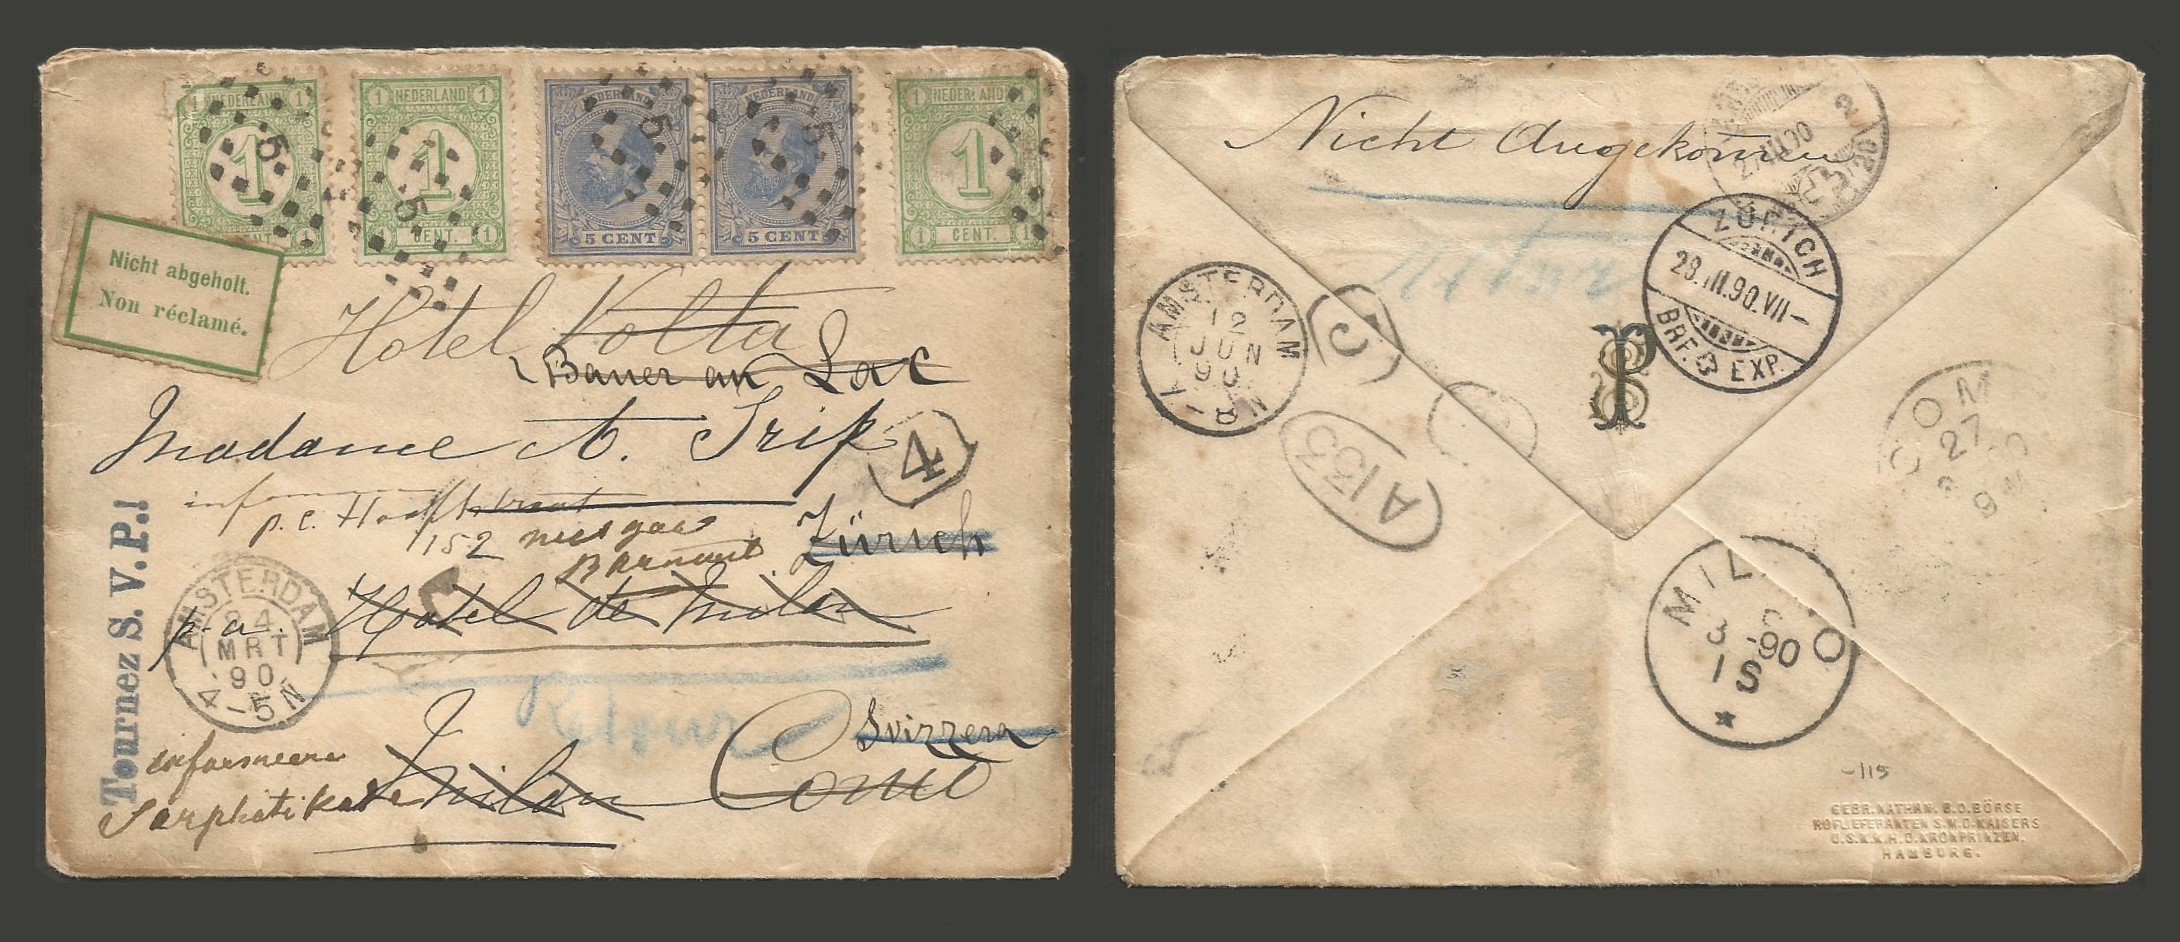 1 NEDERLAND 1
1
1 CENT. 1
5
1 NEDERLAND 1
1
1 CENT. 1
5
NEDERLAND
5 CENT
5
NEDERLAND
5 CENT
5
1 NEDERLAND 1
1
1 CENT. 1
Nicht abgeholt.
Non réclamé.
Hotel Volta
Bauer au Lac
Madame A. Trip
4
P. C. Hooftstraat
152
Zürich
p. a. Hotel de Milan
AMSTERDAM
24
MRT
90
4-5N
Tournez S. V. P.!
Retour
Svizzera
Milan Como
informeere
Sarphatikade
Nicht Angekommen
ZÜRICH
28.III.90.VII-
BRF. EXP.
AMSTERDAM
12
JUN
90
A 133
COMO
27
9 M
MILANO
3-90
1S
-115
GEBR. NATHAN. B.D. BÖRSE
HOFLIEFERANTEN S.M.D. KAISERS
U.S.K.K.H.D. KRONPRINZEN.
HAMBURG.